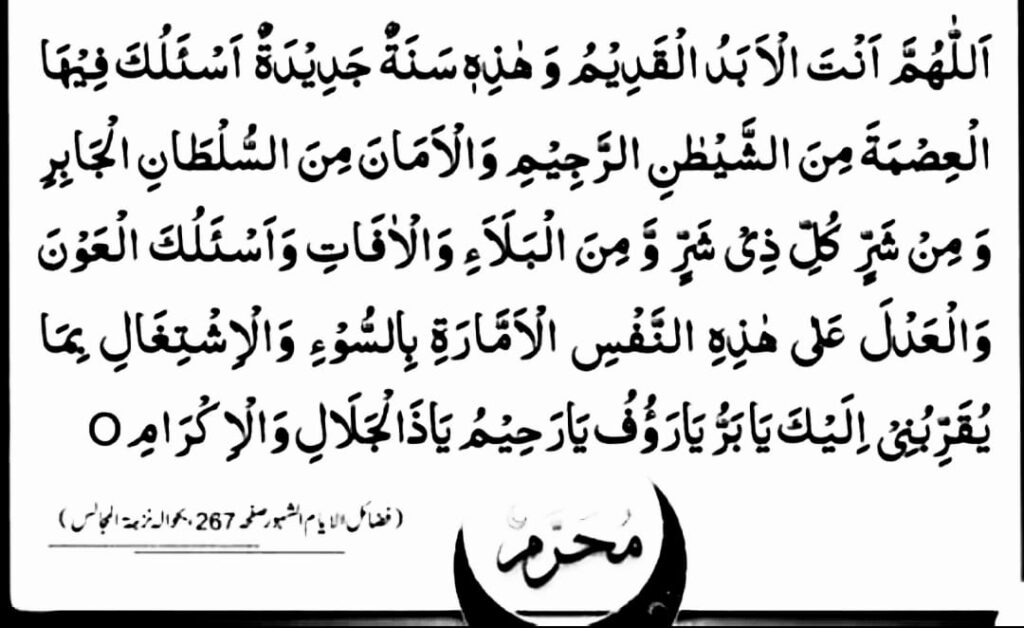 اَللّٰهُمَّ اَنْتَ الْاَبَدُ الْقَدِیْمُ وَ هٰذِهٖ سَنَةٌ جَدِیْدَةٌ اَسْئَلُكَ فِیْهَا
الْعِصْمَةَ مِنَ الشَّیْطٰنِ الرَّجِیْمِ وَالْاَمَانَ مِنَ السُّلْطَانِ الْجَابِرِ
وَ مِنْ شَرِّ كُلِّ ذِیْ شَرٍّ وَّ مِنَ الْبَلَاَءِ وَالْاٰفَاتِ وَاَسْئَلُكَ الْعَوْنَ
وَالْعَدْلَ عَلٰی هٰذِهِ النَّفْسِ الْاَمَّارَةِ بِالسُّوْءِ وَالْاِشْتِغَالِ بِمَا
یُقَرِّبُنِیْ اِلَیْكَ یَا بَرُّ یَارَؤُفُ یَارَحِیْمُ یَاذَالْجَلَالِ وَالْاِكْرَامِ ○
(فضائل الایام الشہور صفحہ 267، بحوالہ نزہۃ المجالس)
مُحَرَّم